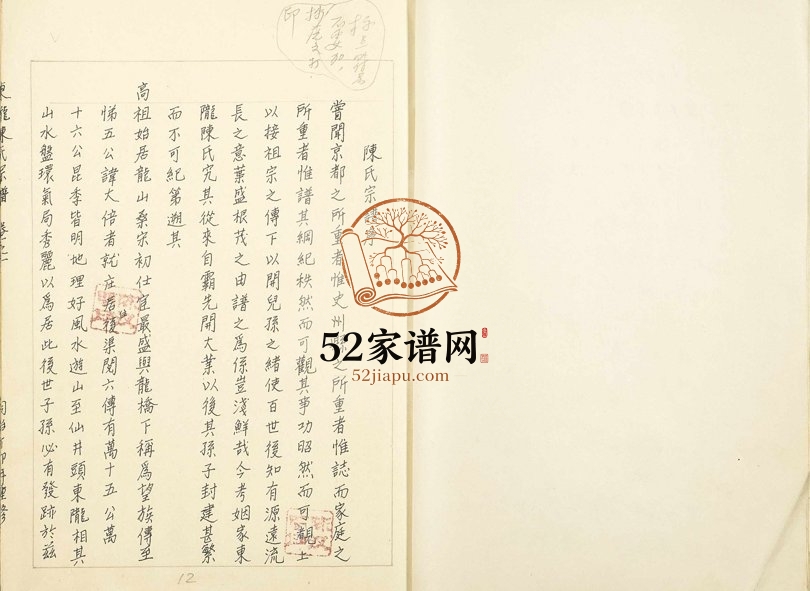 陳氏宗譜序
嘗聞京都之所重者惟史州縣之所重者惟誌而家庭之
所重者惟譜其綱紀秩然而可觀其事功昭然而可觀上
以接祖宗之傳下以開兒孫之緒使百世後知有源遠流
長之意葉盛根茂之由譜之為係豈淺鮮哉今考姻家東
隴陳氏究其從來自霸先開大業以後其孫子封建甚繁
而不可紀第遡其
高祖始居龍山桑宋初仕宦最盛與龍橋下稱為望族傳至
悌五公諱大倍者就庄居後渠閱六傳有萬十五公萬
十六公昆季皆明地理好風水遊山至仙井頭東隴相其
山水盤環氣局秀麗以為居此後世子孫必有發跡於茲
東隴陳氏宗譜 卷之一
12
52家谱网
52jiapu.com